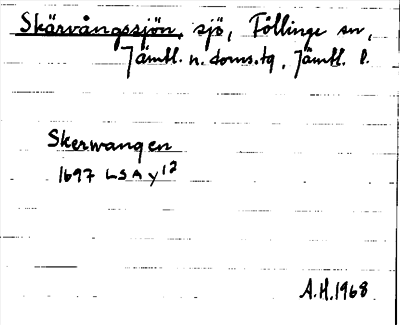 Skärvångssjön, sjö, Föllinge sn,
Jämtl. n. doms.tg, Jämtl. l.
Skerwangen
1697 LSA y12
A.H.1968